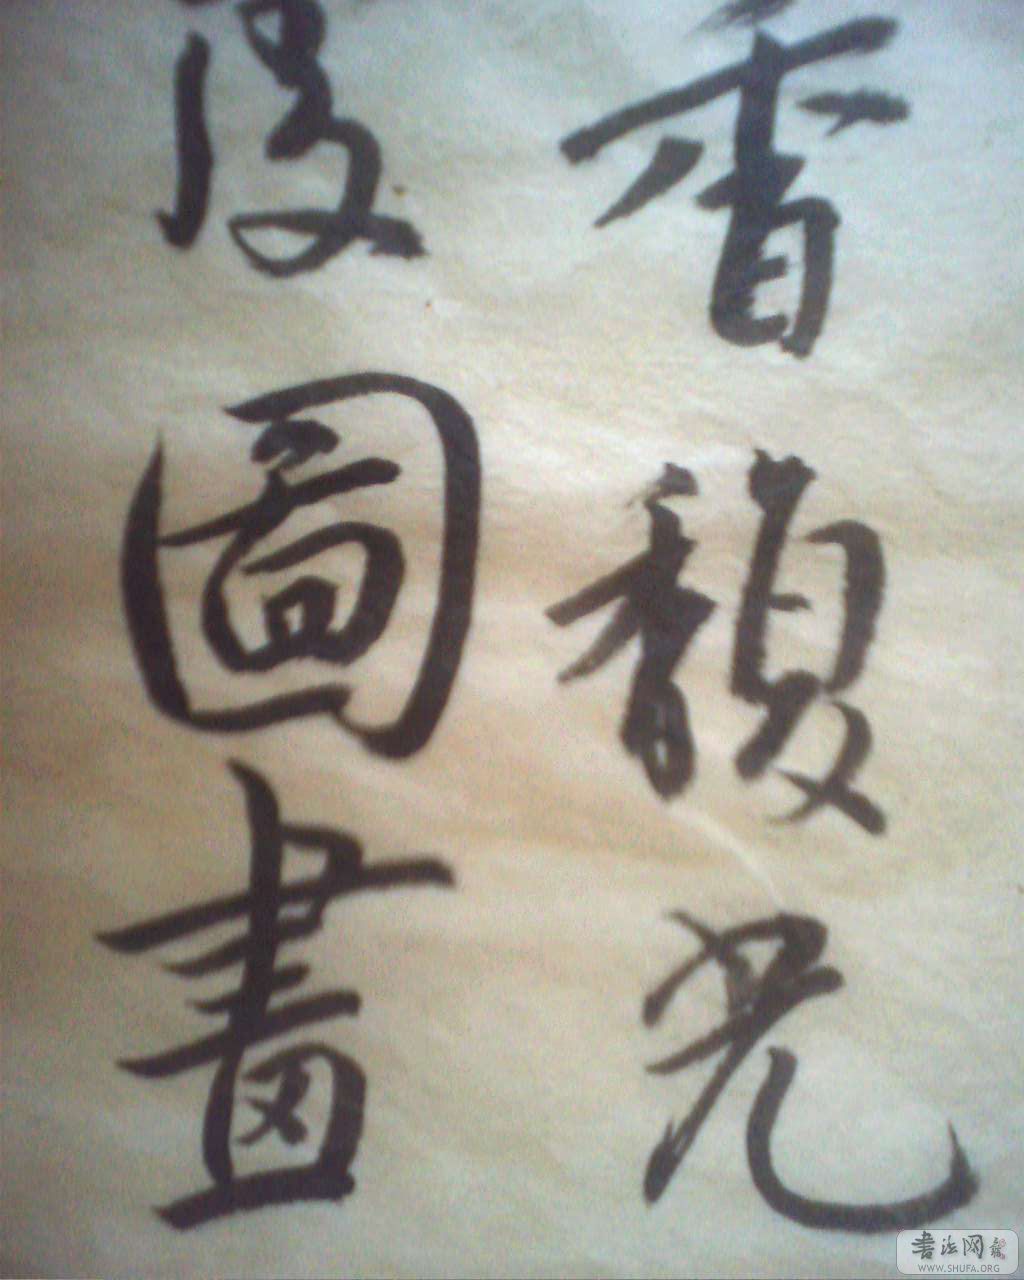 香馥光
圖畫
書法网
WWW.SHUFA.ORG